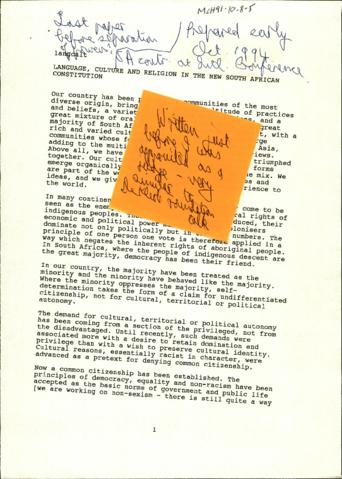 MCH91-10-8-5
Last paper
before separation
of powers
SA contr. at Intl. Conference
Prepared early
Oct. 1994
langcult
LANGUAGE, CULTURE AND RELIGION IN THE NEW SOUTH AFRICAN
CONSTITUTION
Written just
before I was
appointed as a
judge - very
Our country has been communities of the most
diverse origin, bring multitude of practices
and beliefs, a variety
great mixture of ora great
majority of South Af with a
rich and varied cult
communities whose f Asia,
adding to the multi views.
Above all, we have triumphed
together. Our cult forms
emerge organically the mix. We
are part of the w and
ideas, and we giv experience to
the world.
In many continen come to be
seen as the enem rights of
indigenous peoples. , their
economic and political power colonisers
dominate not only politically but in numbers. The
principle of one person one vote is therefore applied in a
way which negates the inherent rights of aboriginal people.
In South Africa, where the people of indigenous descent are
the great majority, democracy has been their friend.
In our country, the majority have been treated as the
minority and the minority have behaved like the majority.
Where the minority oppresses the majority, self-
determination takes the form of a claim for undifferentiated
citizenship, not for cultural, territorial or political
autonomy.
The demand for cultural, territorial or political autonomy
has been coming from a section of the privileged, not from
the disadvantaged. Until recently, such demands were
associated more with a desire to retain domination and
privilege than with a wish to preserve cultural identity.
Cultural reasons, essentially racist in character, were
advanced as a pretext for denying common citizenship.
Now a common citizenship has been established. The
principles of democracy, equality and non-racism have been
accepted as the basic norms of government and public life
[we are working on non-sexism - there is still quite a way
1